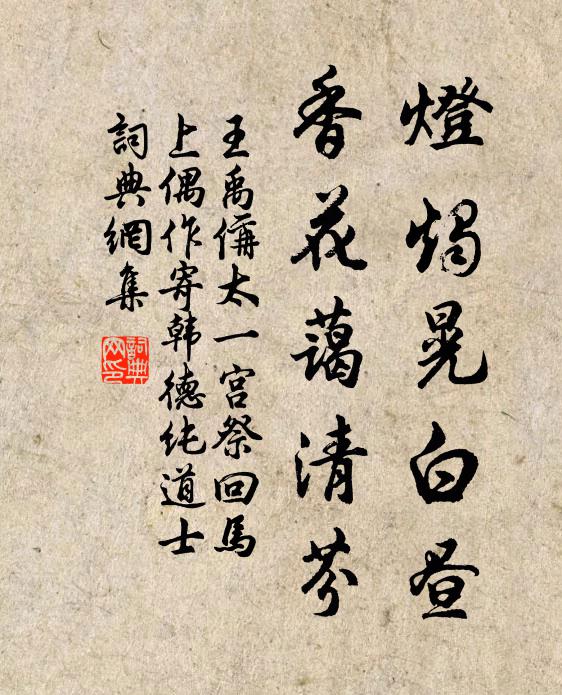 燈燭晃白晝
香花藹清芬
王禹偁太一宮祭回馬
上偶作寄韩德纯道士
詞典網集
詞典
网印